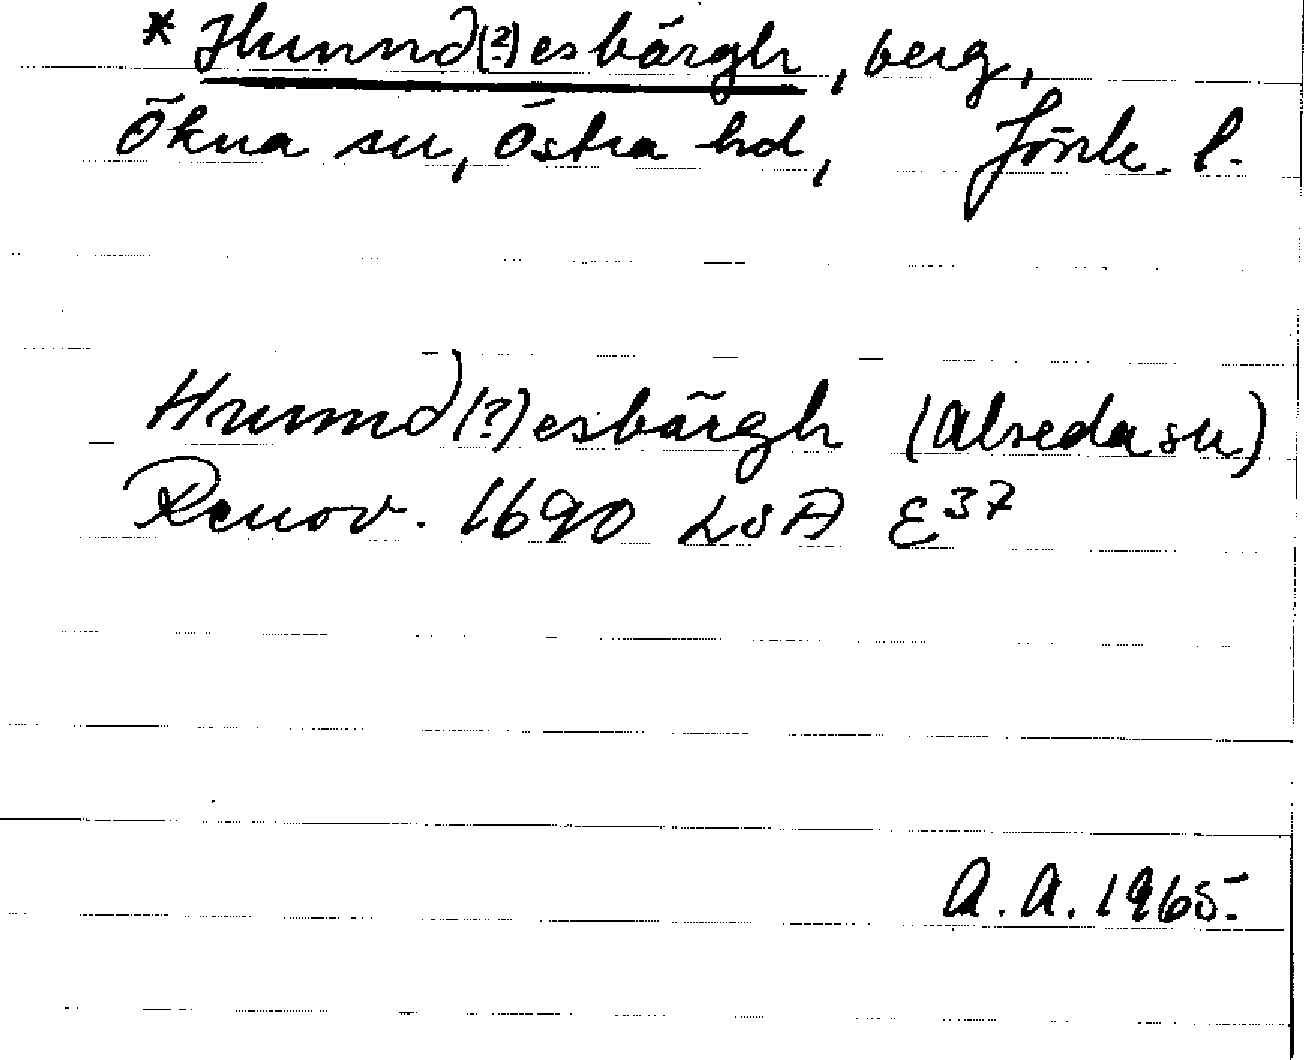 * Hunnd(?)esbärgh, berg,
Ökna sn, Östra hd, Jönk. l.
Hunnd(?)esbärgh (Alseda sn)
Renov. 1690 LSA E37
A. A. 1965.